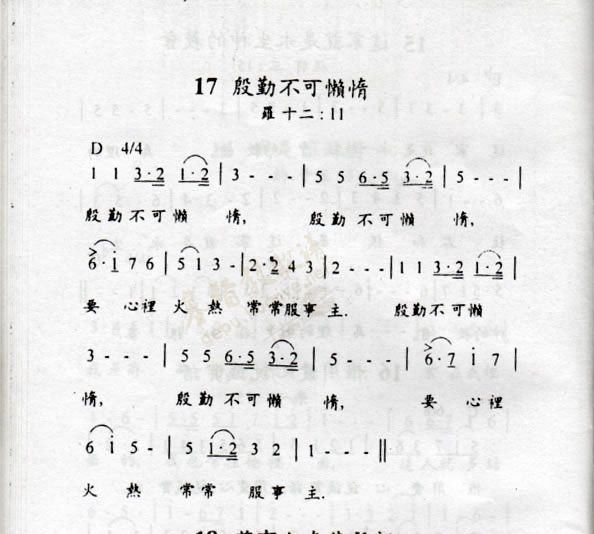 17 殷勤不可懶惰
羅十二:11
D 4/4
1 1 3·2 1·2 | 3 - - - | 5 5 6·5 3·2 | 5 - - - |
殷勤不可懶 惰, 殷勤不可懶 惰,
6·i 7 6 | 5 i 3 - | 2·2 4 3 | 2 - - - | 1 1 3·2 1·2 |
要 心裡 火 熱 常常服事主. 殷勤不可懶
3 - - - | 5 5 6·5 3·2 | 5 - - - | 6·7 i 7 |
惰, 殷勤不可懶 惰, 要 心裡
6 i 5 - | 5 1·2 3 2 | 1 - - - ||
火 熱 常常 服事 主.